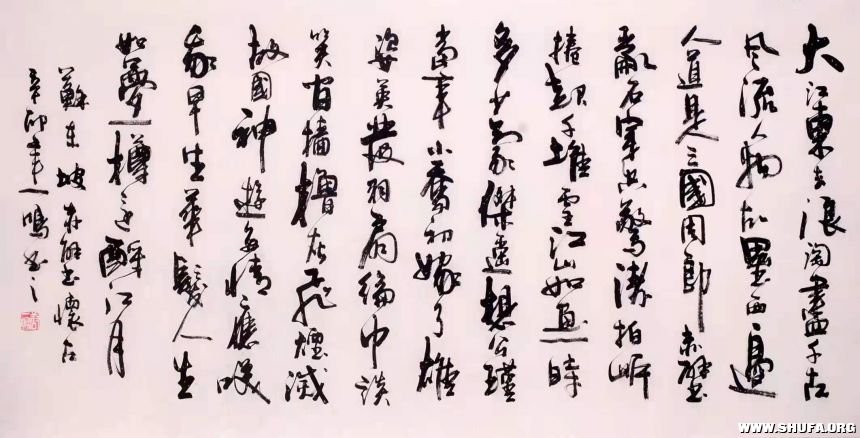 大江東去浪淘盡千古
風流人物故壘西邊
人道是三國周郎赤壁
亂石穿空驚濤拍岸
捲起千堆雪江山如畫一時
多少豪傑遙想公瑾
當年小喬初嫁了雄
姿英發羽扇綸巾談
笑間檣櫓灰飛煙滅
故國神遊多情應咲
我早生華髮人生
如夢一樽還酹江月
蘇東坡赤壁懷古
辛卯年一鳴書之
WWW.SHUFA.ORG